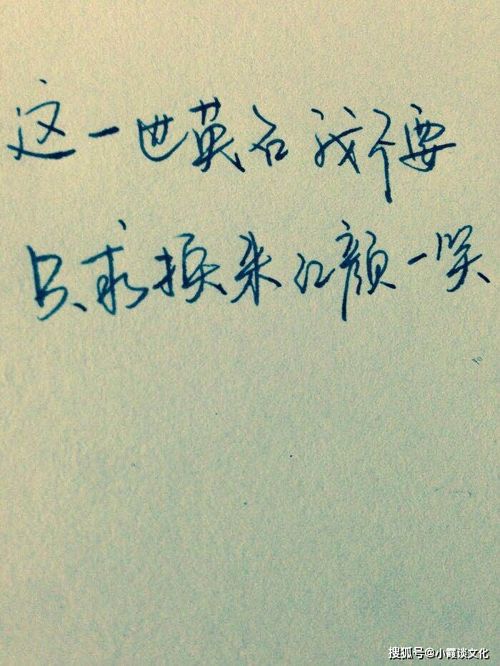 这一世英名我不要
只求换来红颜一笑
搜狐号@小霞谈文化